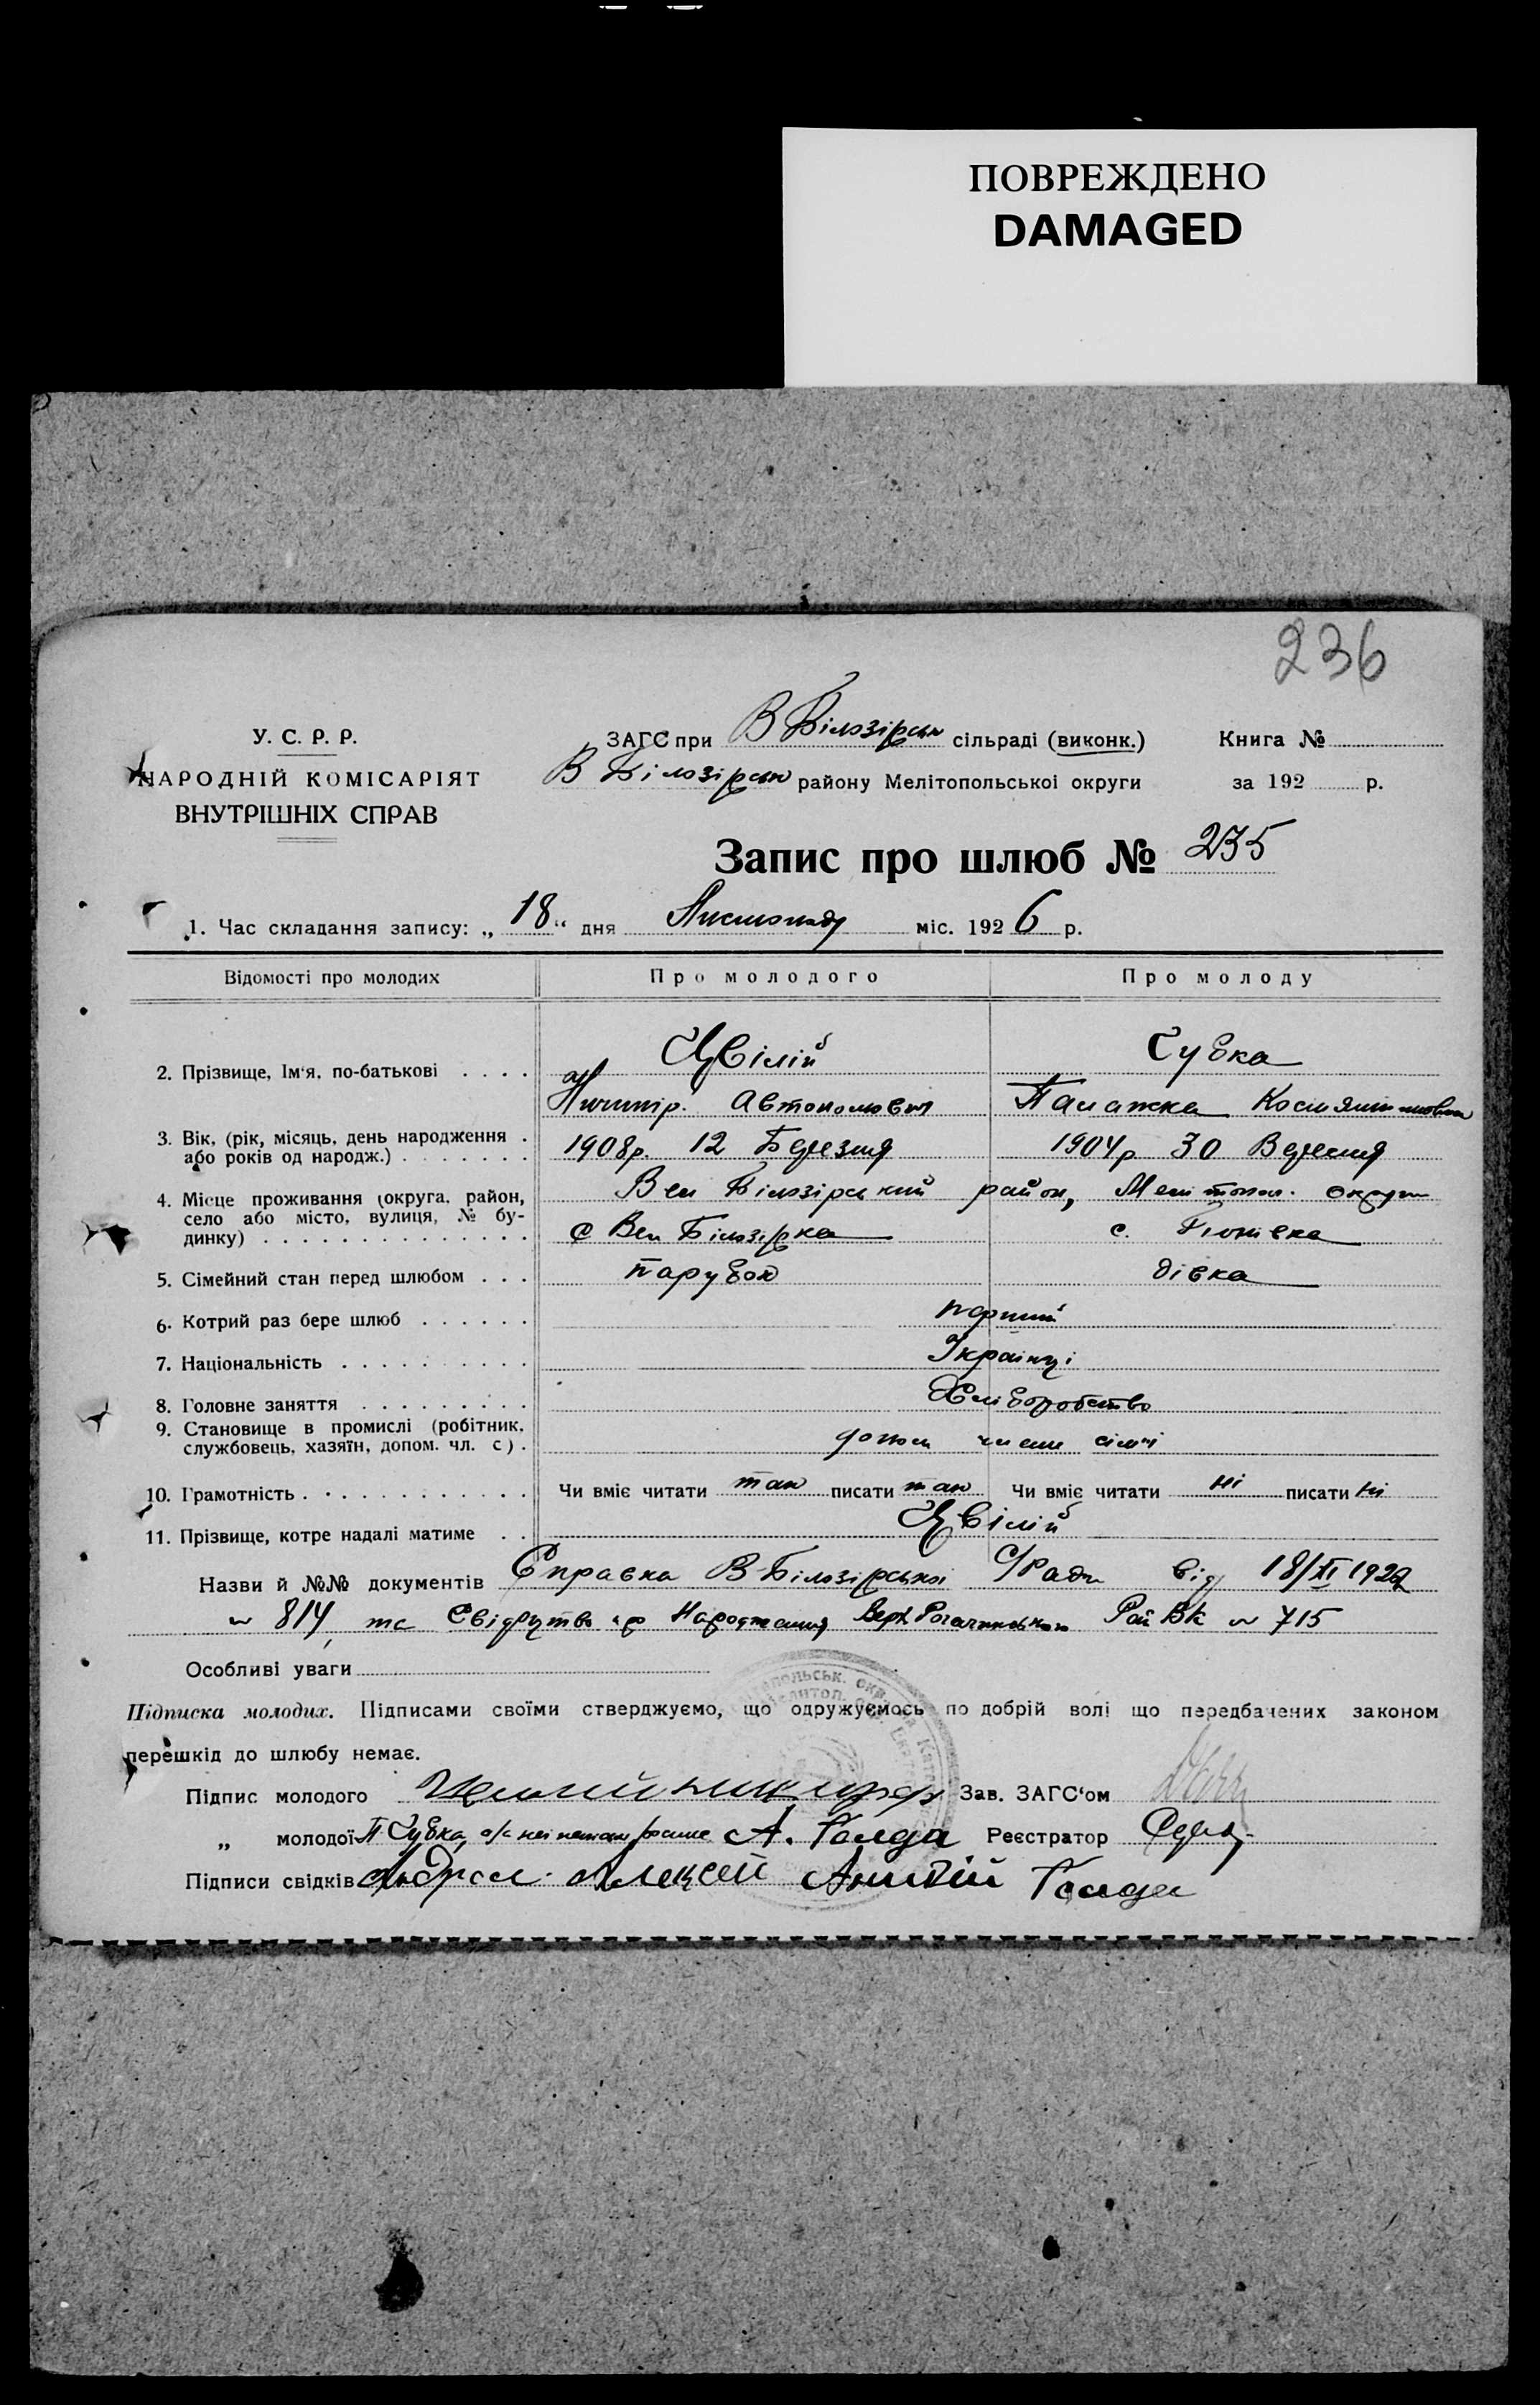 ПОВРЕЖДЕНО
DAMAGED
236
У. С. Р. Р.
НАРОДНІЙ КОМІСАРІЯТ
ВНУТРІШНІХ СПРАВ
ЗАГС при В Білозірськ сільраді (виконк.)
В Білозірськ району Мелітопольскої округи
Книга №
за 192 р.
Запис про шлюб № 235
1. Час складання запису: „ 18 “ дня Листопаду міс. 1926 р.
Відомості про молодих Про молодого Про молоду
2. Прізвище, Ім'я, по-батькові . . . . Цвілій Субка
Ничипір. Автономович Палажка Костянтиновна
3. Вік, (рік, місяць, день народження . або років од народж.) . . . . . . . 1908р. 12 Березня 1904р 30 Вересня
4. Місце проживання (округа, район, Вел Білозірський район, Меліт­опол. округи
село або місто, вулиця, № бу-
динку) . . . . . . . . . . . . . . с Вел Білозірка с.
5. Сімейний стан перед шлюбом . . . парубок дівка
6. Котрий раз бере шлюб . . . . . . перший
7. Національність . . . . . . . . . . Українці
8. Головне заняття . . . . . . . . . Хліборобство
9. Становище в промислі (робітник,
службовець, хазяїн, допом. чл. с) . допом члени сім'ї
10. Грамотність . . . . . . . . . . . . Чи вміє читати так писати так Чи вміє читати ні писати ні
11. Прізвище, котре надалі матиме . . Цвілій
Назви й №№ документів Справка В-Білозірської С/Ради від 18/XI 1926
№ 814 та Свідоцтво про Народження Верх Рогачинського РайВК № 715
Особливі уваги
Підписка молодих. Підписами своїми стверджуємо, що одружуємось по добрій волі що передбачених законом
перешкід до шлюбу немає.
Підпис молодого Цвилий Зав. ЗАГС'ом
„ молодої П Субка, а за неї неписьм А. Галда Реєстратор
Підписи свідків Алексей Антій Галда